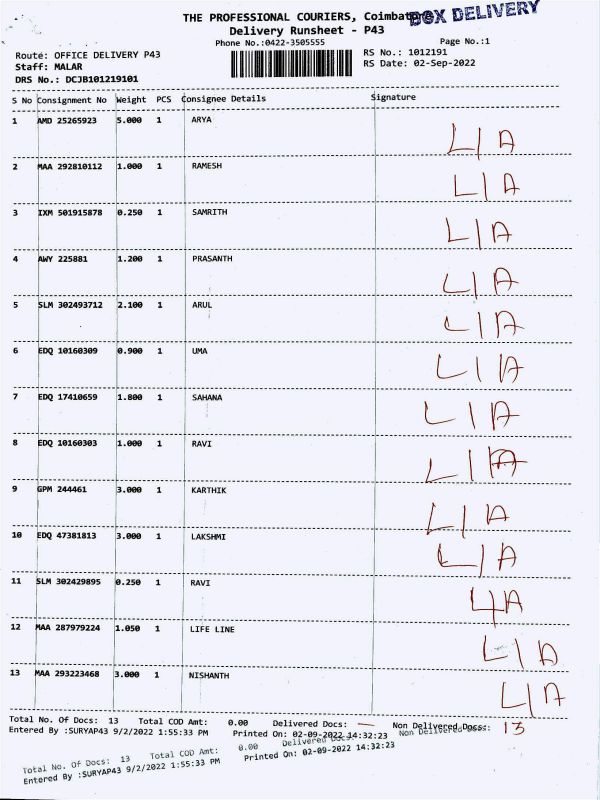 THE PROFESSIONAL COURIERS, Coimbatore
BOX DELIVERY
Delivery Runsheet - P43
Phone No.:0422-3505555
Page No.:1
Route: OFFICE DELIVERY P43
RS No.: 1012191
Staff: MALAR
RS Date: 02-Sep-2022
DRS No.: DCJB101219101
S No Consignment No Weight PCS Consignee Details Signature
1 AMD 25265923 5.000 1 ARYA L/A
2 MAA 292810112 1.000 1 RAMESH L/A
3 IXM 501915878 0.250 1 SAMRITH L/A
4 AWY 225881 1.200 1 PRASANTH L/A
5 SLM 302493712 2.100 1 ARUL L/A
6 EDQ 10160309 0.900 1 UMA L/A
7 EDQ 17410659 1.800 1 SAHANA L/A
8 EDQ 10160303 1.000 1 RAVI L/A
9 GPM 244461 3.000 1 KARTHIK L/A
10 EDQ 47381813 3.000 1 LAKSHMI L/A
11 SLM 302429895 0.250 1 RAVI L/A
12 MAA 287979224 1.050 1 LIFE LINE L/A
13 MAA 293223468 3.000 1 NISHANTH L/A
Total No. Of Docs: 13 Total COD Amt: 0.00 Delivered Docs: — Non Delivered Docs: 13
Entered By :SURYAP43 9/2/2022 1:55:33 PM Printed On: 02-09-2022 14:32:23
Total No. Of Docs: 13 Total COD Amt: 0.00 Delivered Docs: Non Delivered Docs:
Entered By :SURYAP43 9/2/2022 1:55:33 PM Printed On: 02-09-2022 14:32:23